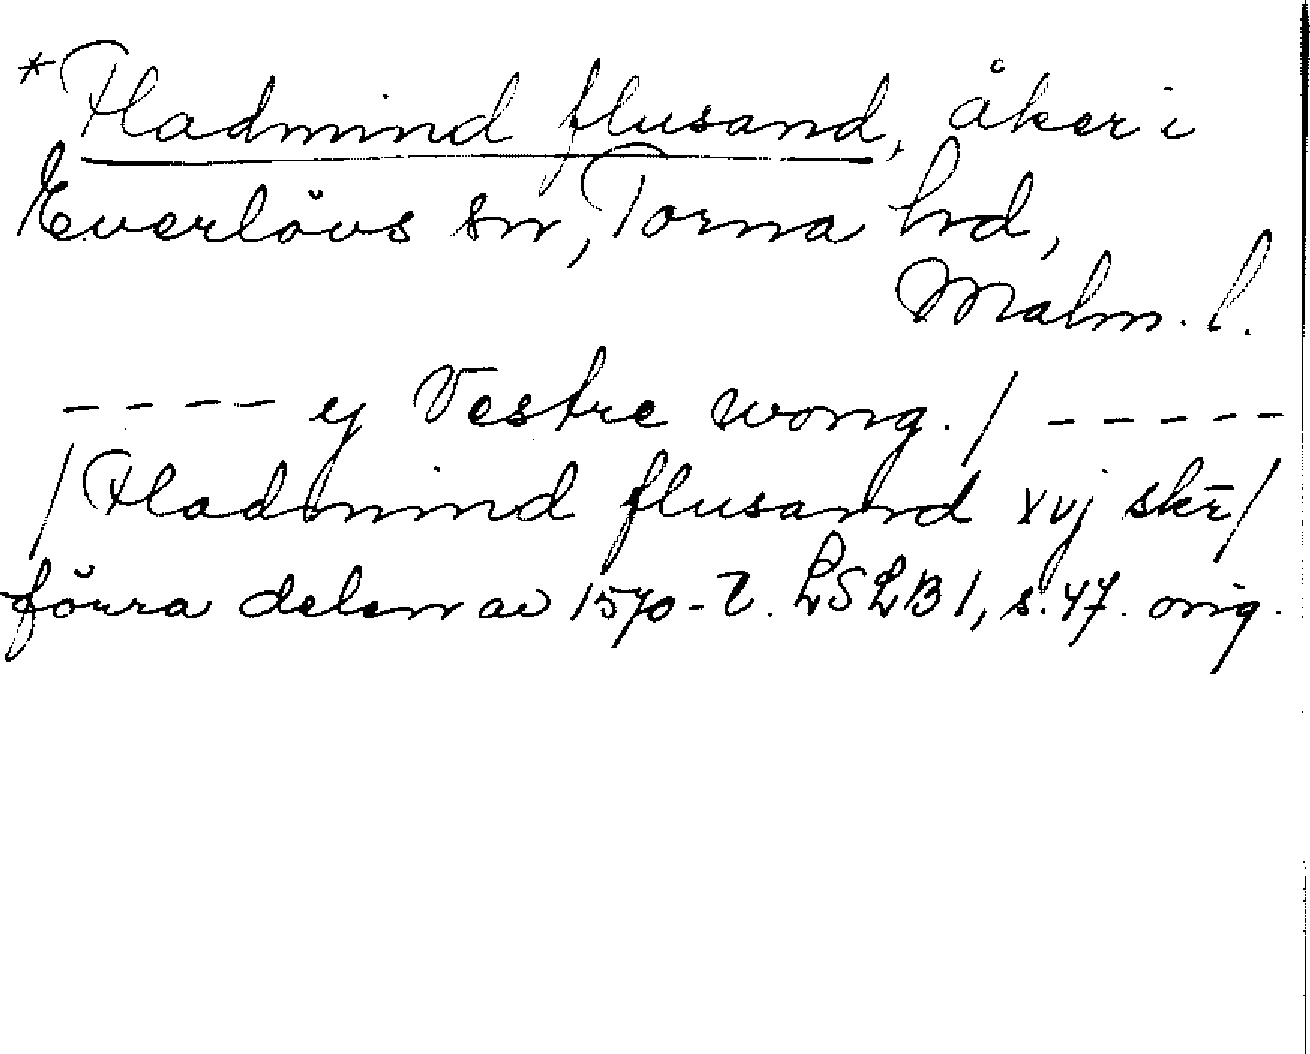 *Hadmind flusand, åker i
Everlövs sn, Torna hd,
Malm. l.
- - - - ij Vestre wong. / - - - - -
/ Hadmind flusand xvj skr̄ /
förra delen av 1570-t. LSLB 1, s. 47. orig.